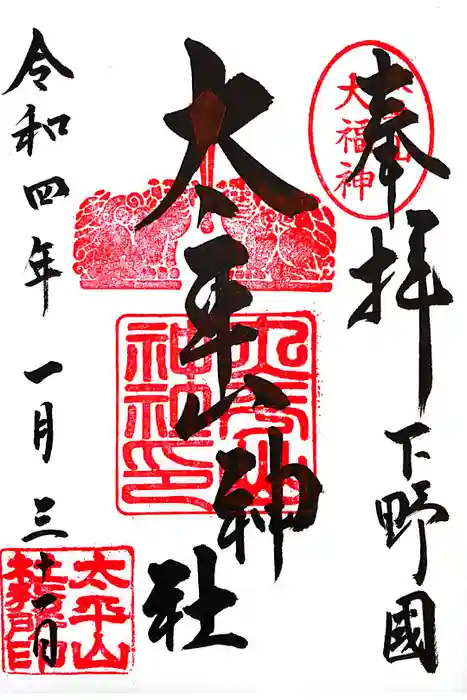 奉拝
下野國
太平山神社
令和四年 一月三十一日
大福神
太平山
神社印
太平山
社務所印